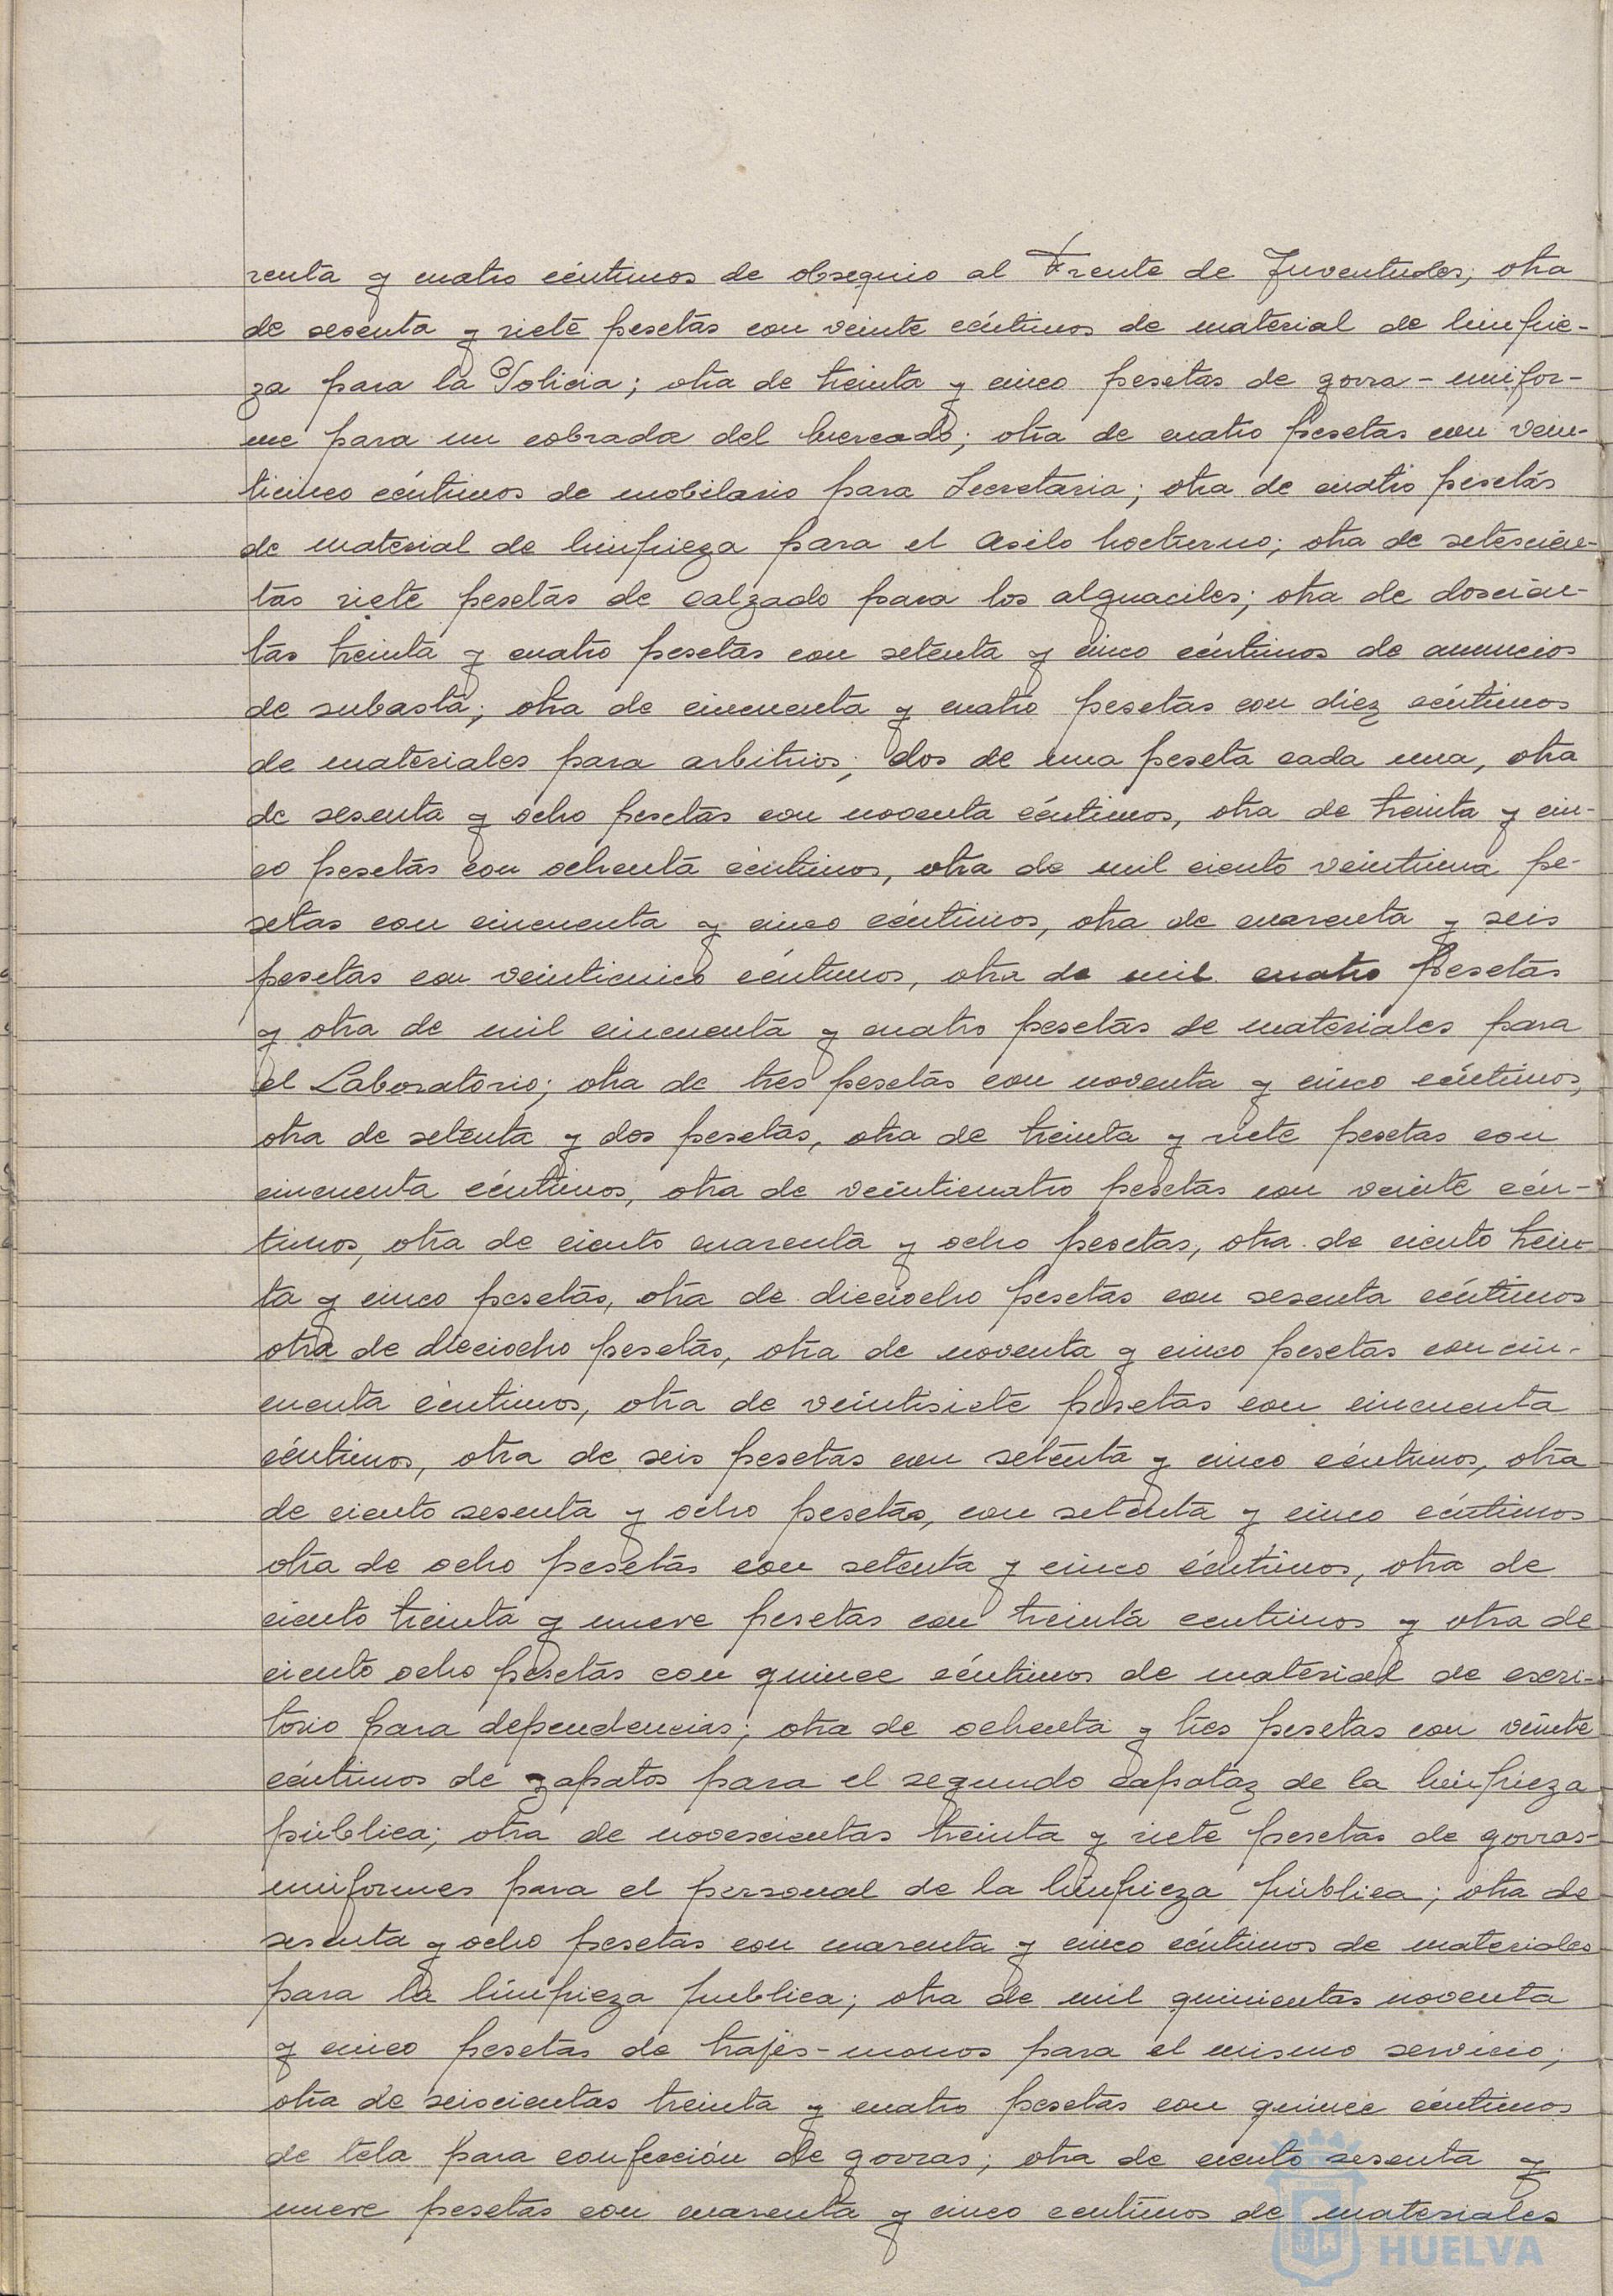 renta y cuatro céntimos de obsequio al Frente de Juventudes; otra
de sesenta y siete pesetas con veinte céntimos de material de limpie-
za para la Policia; otra de treinta y cinco pesetas de gorra-unifor-
me para un cobrador del Mercado; otra de cuatro pesetas con vein-
ticinco céntimos de mobilario para Secretaria; otra de cuatro pesetas
de material de limpieza para el Asilo nocturno; otra de setescien-
tas siete pesetas de calzado para los alguaciles; otra de doscien-
tas treinta y cuatro pesetas con setenta y cinco céntimos de anuncios
de subasta; otra de cincuenta y cuatro pesetas con diez céntimos
de materiales para arbitrios; dos de una peseta cada una, otra
de sesenta y ocho pesetas con noventa céntimos, otra de treinta y cin-
co pesetas con ochenta céntimos, otra de mil ciento veintiuna pe-
setas con cincuenta y cinco céntimos, otra de cuarenta y seis
pesetas con veinticinco céntimos, otra de mil cuatro pesetas
y otra de mil cincuenta y cuatro pesetas de materiales para
el Laboratorio; otra de tres pesetas con noventa y cinco céntimos,
otra de setenta y dos pesetas, otra de treinta y siete pesetas con
cincuenta céntimos, otra de veinticuatro pesetas con veinte cén-
timos, otra de ciento cuarenta y ocho pesetas, otra de ciento trein-
ta y cinco pesetas, otra de dieciocho pesetas con sesenta céntimos
otra de dieciocho pesetas, otra de noventa y cinco pesetas con cin-
cuenta céntimos, otra de veintisiete pesetas con cincuenta
céntimos, otra de seis pesetas con setenta y cinco céntimos, otra
de ciento sesenta y ocho pesetas, con setenta y cinco céntimos
otra de ocho pesetas con setenta y cinco céntimos, otra de
ciento treinta y nueve pesetas con treinta centimos y otra de
ciento ocho pesetas con quince céntimos de material de escri-
torio para dependencias; otra de ochenta y tres pesetas con veinte
céntimos de zapatos para el segundo capataz de la limpieza
pública; otra de novescientas treinta y siete pesetas de gorras-
uniformes para el personal de la limpieza pública; otra de
sesenta y ocho pesetas con cuarenta y cinco céntimos de materiales
para la limpieza publica; otra de mil quinientas noventa
y cinco pesetas de trajes-monos para el mismo servicio;
otra de seiscientas treinta y cuatro pesetas con quince céntimos
de tela para confección de gorras; otra de ciento sesenta y
nueve pesetas con cuarenta y cinco centimos de materiales
HUELVA